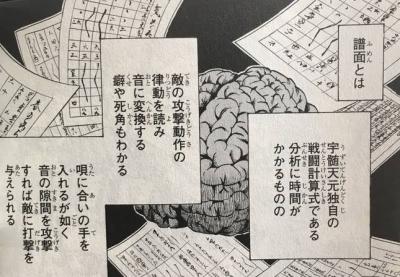 譜面とは
宇髄天元独自の
戦闘計算式である
分析に時間が
かかるものの
敵の攻撃動作の
律動を読み
音に変換する
癖や死角もわかる
唄に合いの手を
入れるが如く
音の隙間を攻撃
すれば敵に打撃を
与えられる